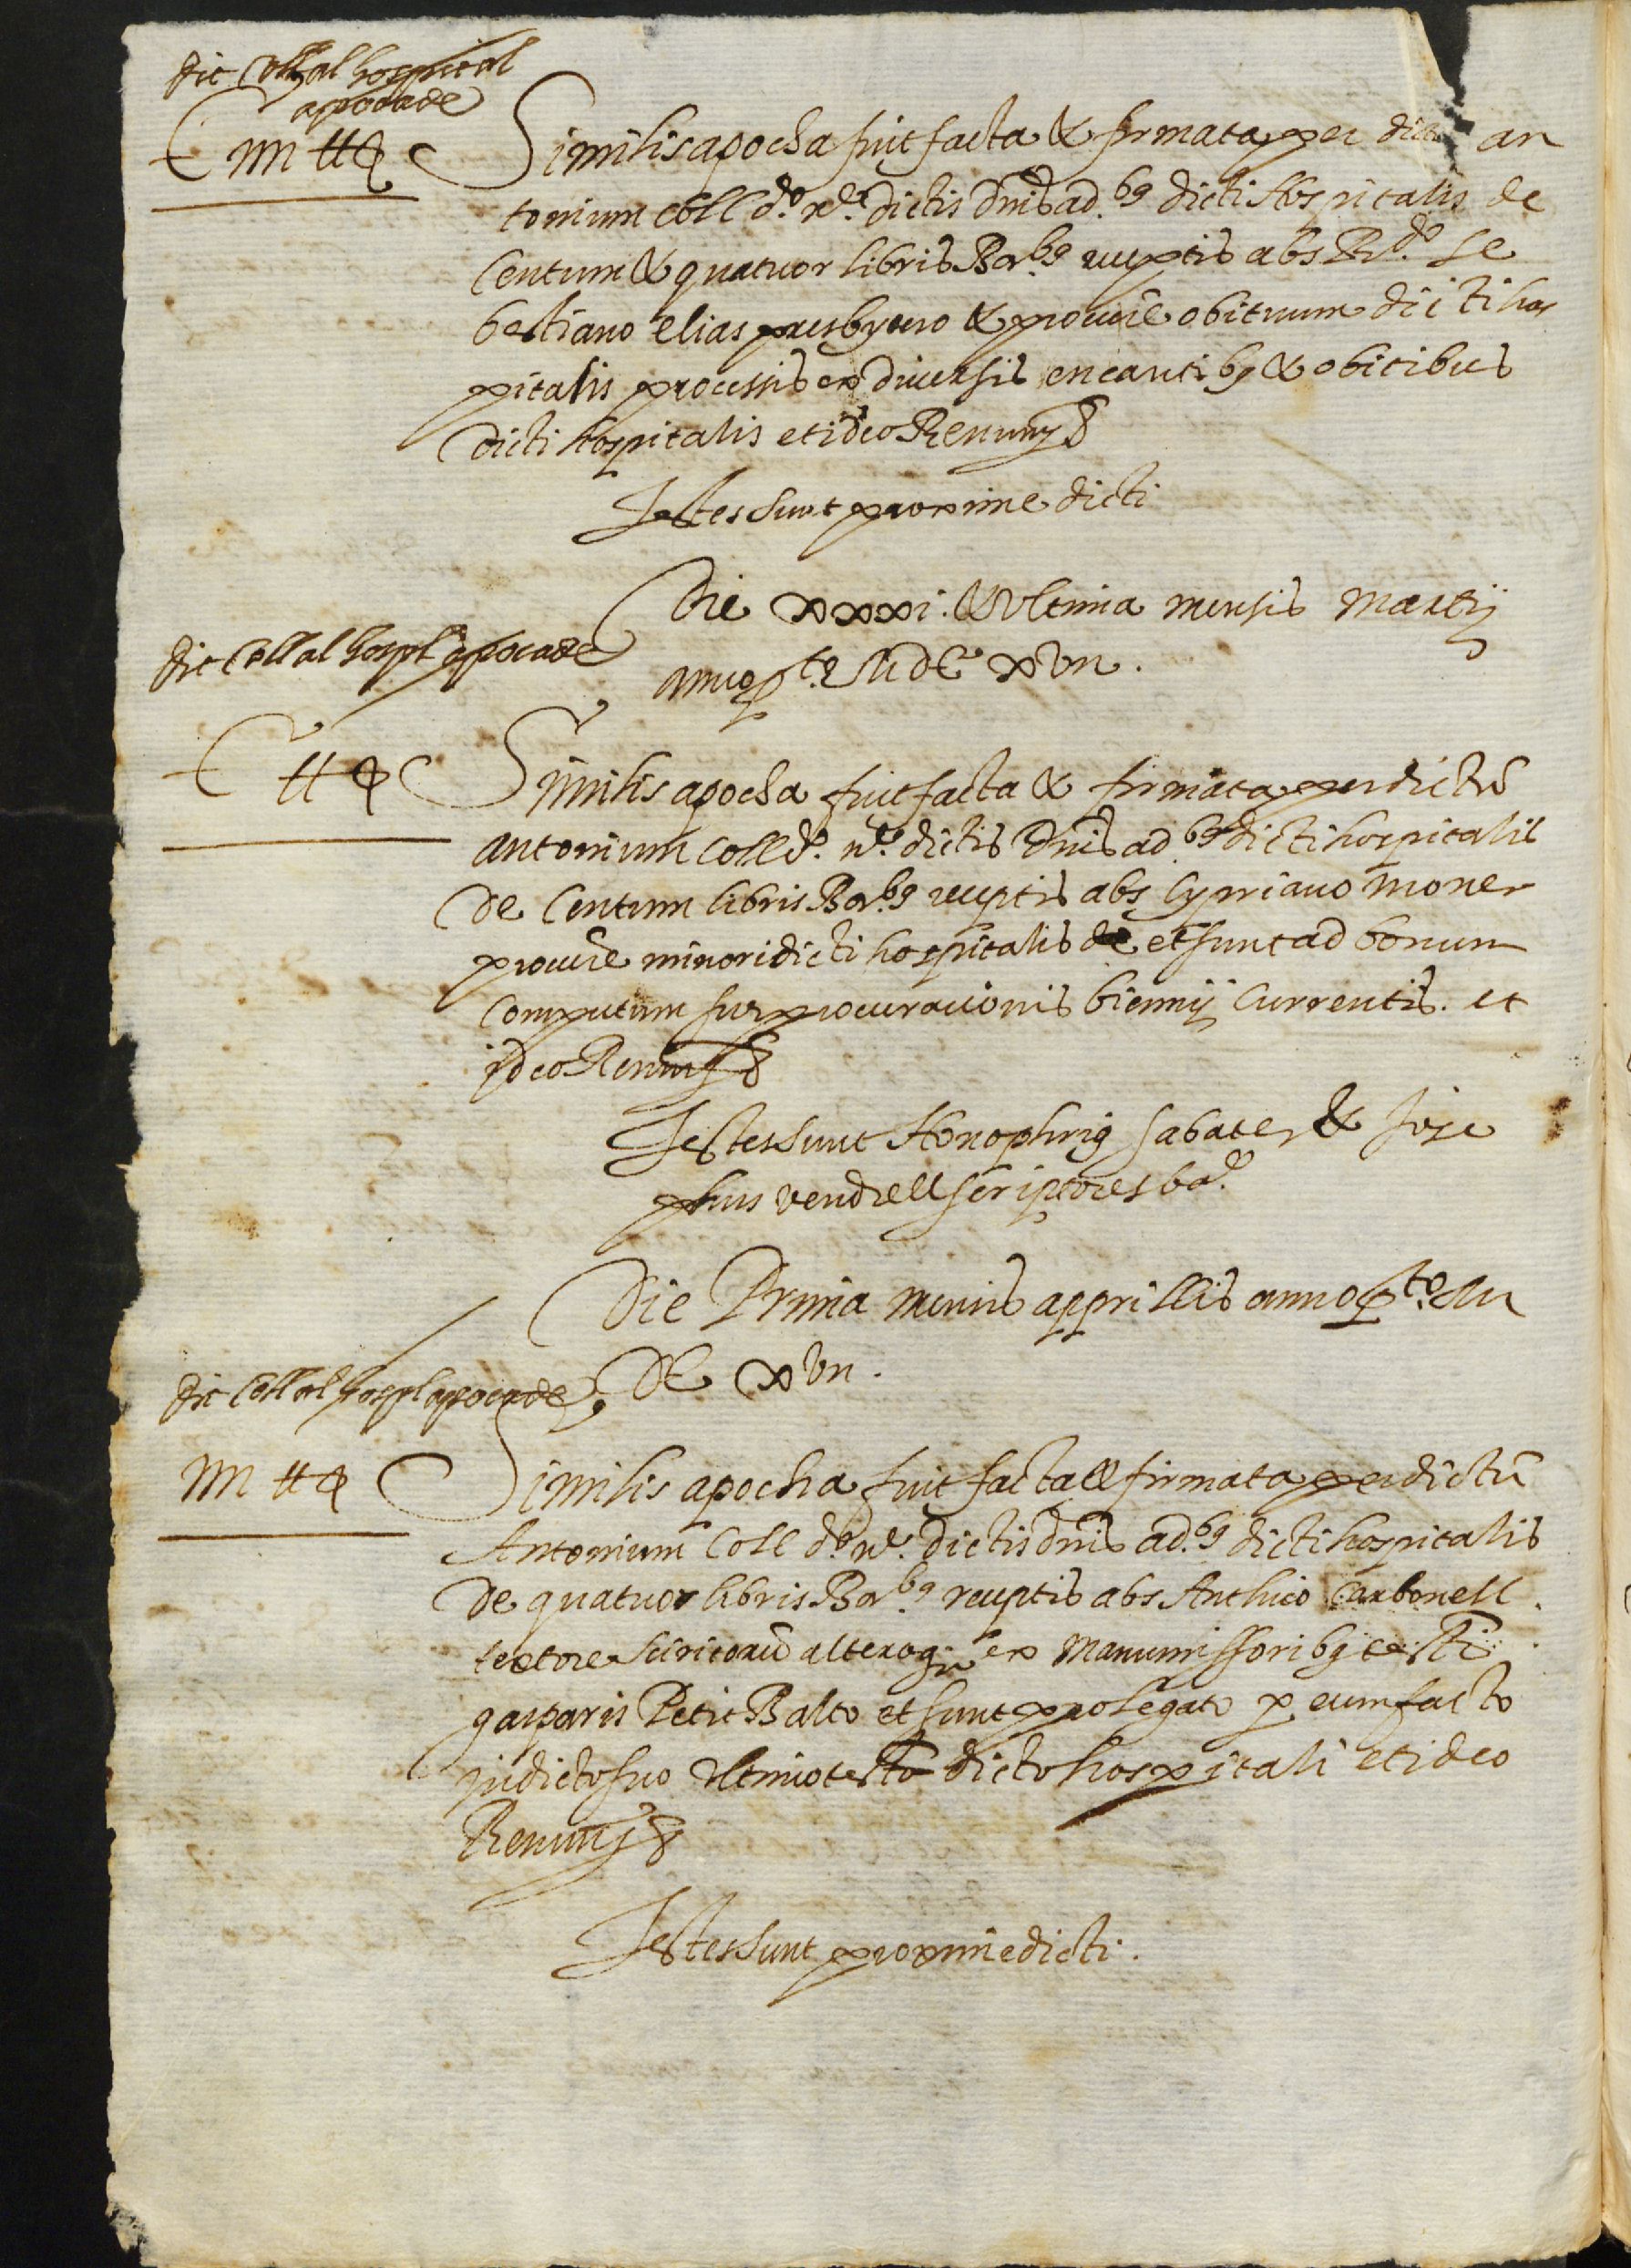 dit Coll al hospital
apoca de
C iiii ħ
Similis apocha fuit facta & firmata per dict an
tonium Coll d.º n.º dictis Dnis ad.bꝰ dicti Hospitalis de
Centum & quatuor libris Bar.bꝰ receptis abs R.do Se
bestiano elias presbytero & procure obituum dicti hos
pitalis processis ex diversis encantibꝰ & obitibus
dicti hospitalis et ideo Renun &
Testes sunt proxime dicti
Die xxxi. & Ultima mensis Martij
anno p.to MDC xvii.
dit Coll al hospl apoca de
C ħ
Similis apocha fuit facta & firmata per dictū
antonium Coll d.º n.º dictis Dnis ad.bꝰ dicti hospitalis
de Centum libris Bar.bꝰ receptis abs Cypriano moner
procure minori dicti hospitalis et sunt ad bonum
Computum sue procurationis biennij Currentis. et
ideo Renun &
Testes sunt Honophriꝰ sabater & Jose
phus vendrell scriptores ba.
Die Prima mensis apprillis anno p.to M
DC xvii.
dit Coll al hospl apoca de
iiii ħ
Similis apocha fuit facta & firmata per dictū
Antonium Coll d.º n.º dictis dnis ad.bꝰ dicti hospitalis
de quatuor libris Bar.bꝰ receptis abs Anthico Carbonell
textore Siricorū altero ex Manumissoribꝰ testi
gasparis Petit Balto et sunt pro legato p eum facto
in dicto suo ultimo testo dicto hospitali et ideo
Renun &
Testes sunt proxime dicti.